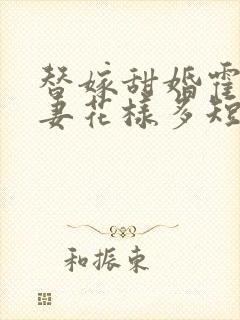 替嫁甜婚霍
妻花样多短
和振東